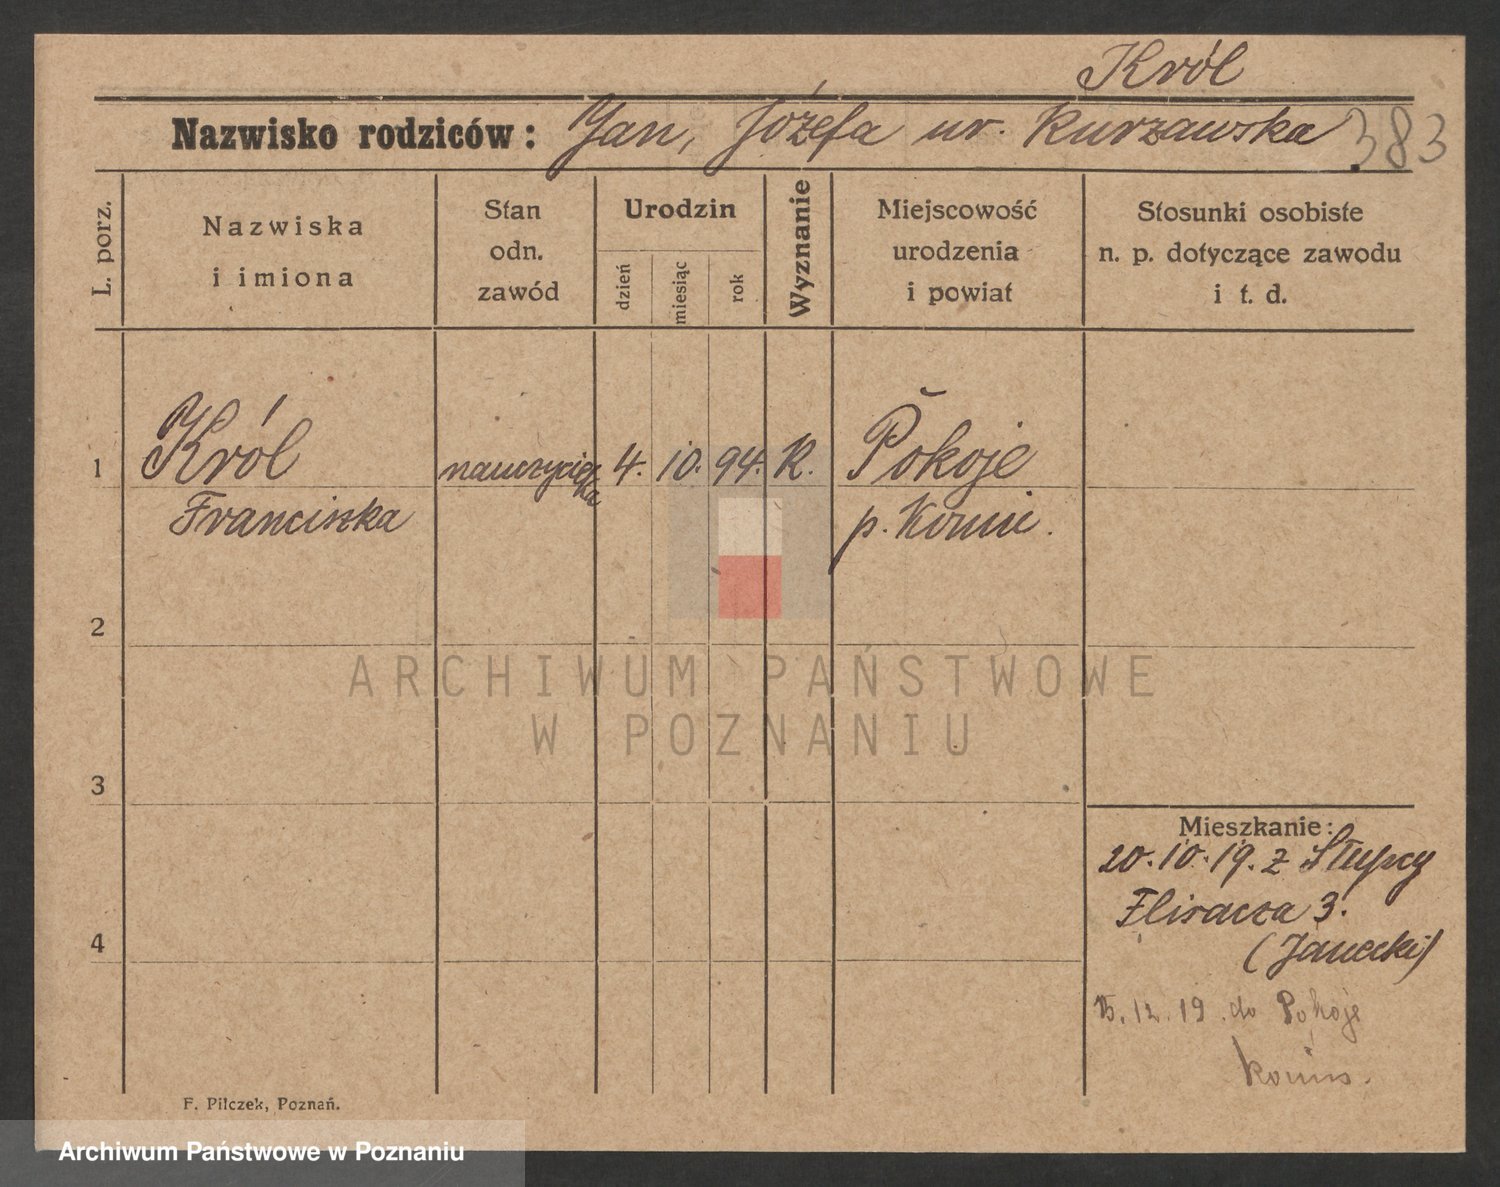 Król
Nazwisko rodziców: Jan, Józefa ur. Kurzawska 383
L. porz.
Nazwiska
i imiona
Stan
odn.
zawód
Urodzin
dzień
miesiąc
rok
Wyznanie
Miejscowość
urodzenia
i powiat
Stosunki osobiste
n. p. dotyczące zawodu
i t. d.
1 Król nauczycielka 4. 10. 94. K. Pokoje
Franciszka p. Konin.
2
3
4
Mieszkanie:
20.10.19. z Słupcy
Flisacza 3.
(Janecki)
15.12.19. do Pokoje
F. Pilczek, Poznań.
ARCHIWUM PAŃSTWOWE
W POZNANIU
Archiwum Państwowe w Poznaniu